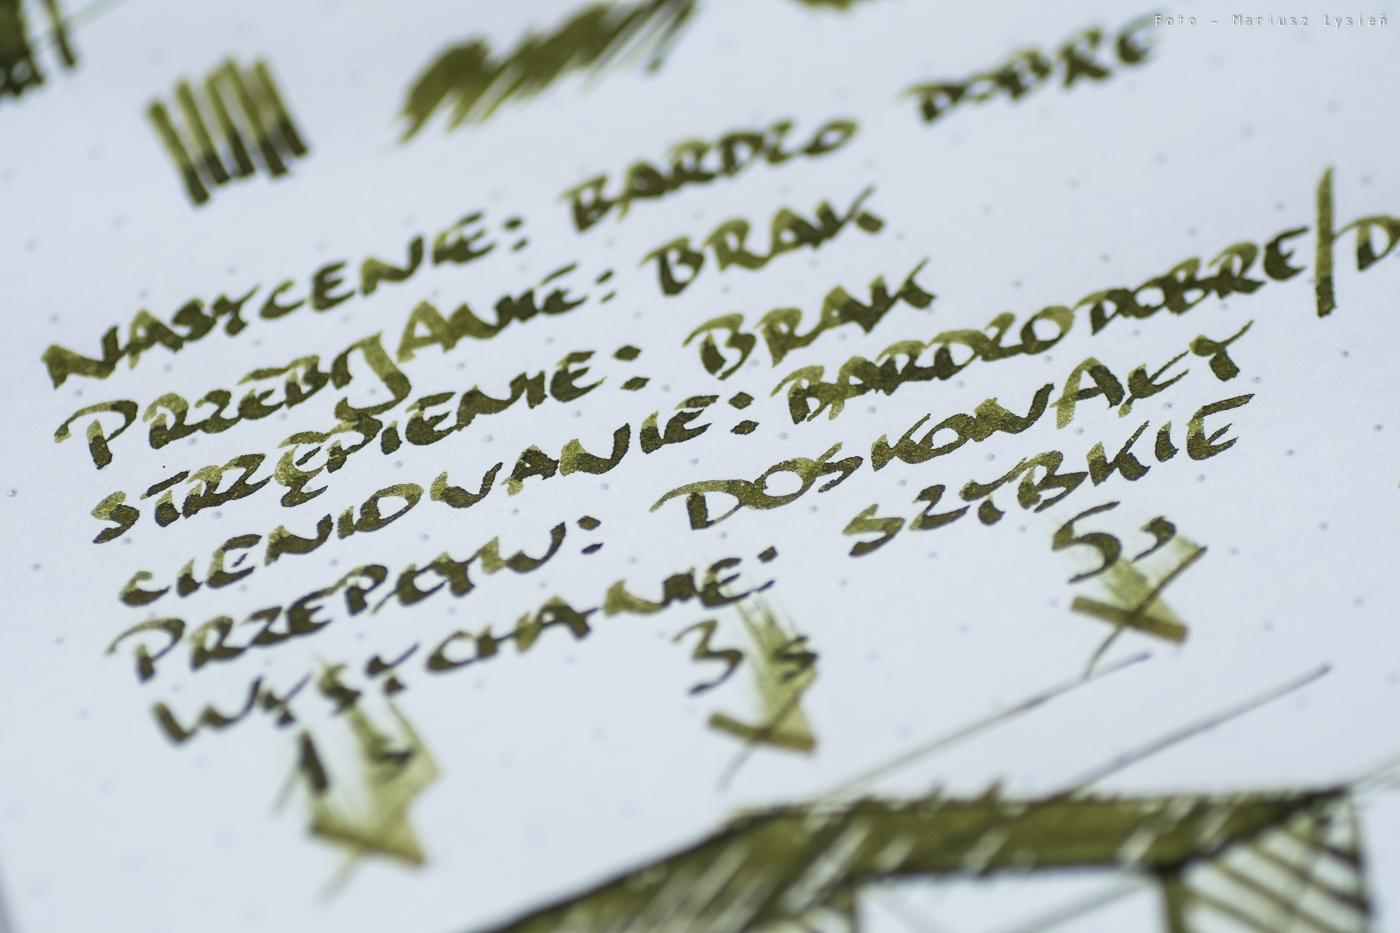 Foto - Mariusz Łysień
NASYCENIE: BARDZO DOBRE
PRZEBIJANIE: BRAK
STRZĘPIENIE: BRAK
CIENIOWANIE: BARDZO DOBRE/D
PRZEPŁYW: DOSKONAŁY
WYSYCHANIE: SZYBKIE
1s 3s 5s